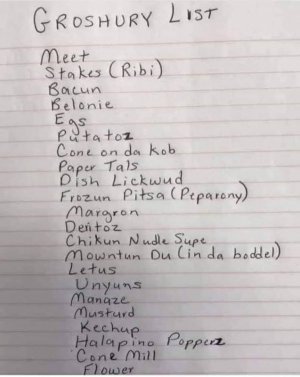 GROSHURY LIST
Meet
Stakes (Ribi)
Bacun
Belonie
Egs
Putatoz
Cone on da kob
Paper Tals
Dish Lickwud
Frozun Pitsa (Peparony)
Margron
Dentoz
Chikun Nudle Supe
Mowntun Du (in da boddel)
Letus
Unyuns
Manaze
Musturd
Kechup
Halapino Popperz
Cone Mill
Flower